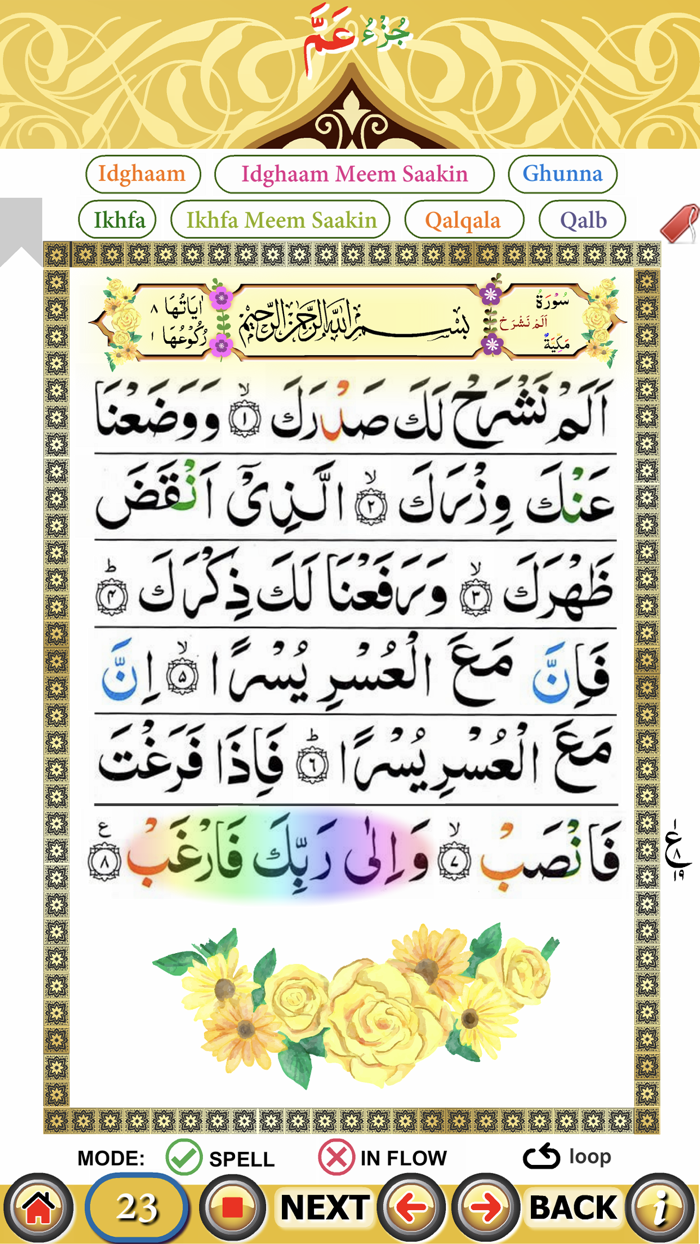 جُزْءُ عَمَّ
Idghaam Idghaam Meem Saakin Ghunna
Ikhfa Ikhfa Meem Saakin Qalqala Qalb
سُوْرَةُ اَلَمْ نَشْرَحْ مَكِّيَّةٌ
بِسْمِ اللّٰهِ الرَّحْمٰنِ الرَّحِيْمِ
اٰيَاتُهَا ٨
رُكُوْعُهَا ١
اَلَمْ نَشْرَحْ لَكَ صَدْرَكَ ۙ﴿١﴾ وَوَضَعْنَا
عَنْكَ وِزْرَكَ ۙ﴿٢﴾ الَّذِىْۤ اَنْقَضَ
ظَهْرَكَ ۙ﴿٣﴾ وَرَفَعْنَا لَكَ ذِكْرَكَ ؕ﴿۴﴾
فَاِنَّ مَعَ الْعُسْرِ يُسْرًا ۙ﴿۵﴾ اِنَّ
مَعَ الْعُسْرِ يُسْرًا ؕ﴿٦﴾ فَاِذَا فَرَغْتَ
فَانْصَبْ ۙ﴿٧﴾ وَاِلٰى رَبِّكَ فَارْغَبْ ࣖ﴿٨﴾
١
ع
٨
١٩
MODE: SPELL IN FLOW loop
23 NEXT BACK i